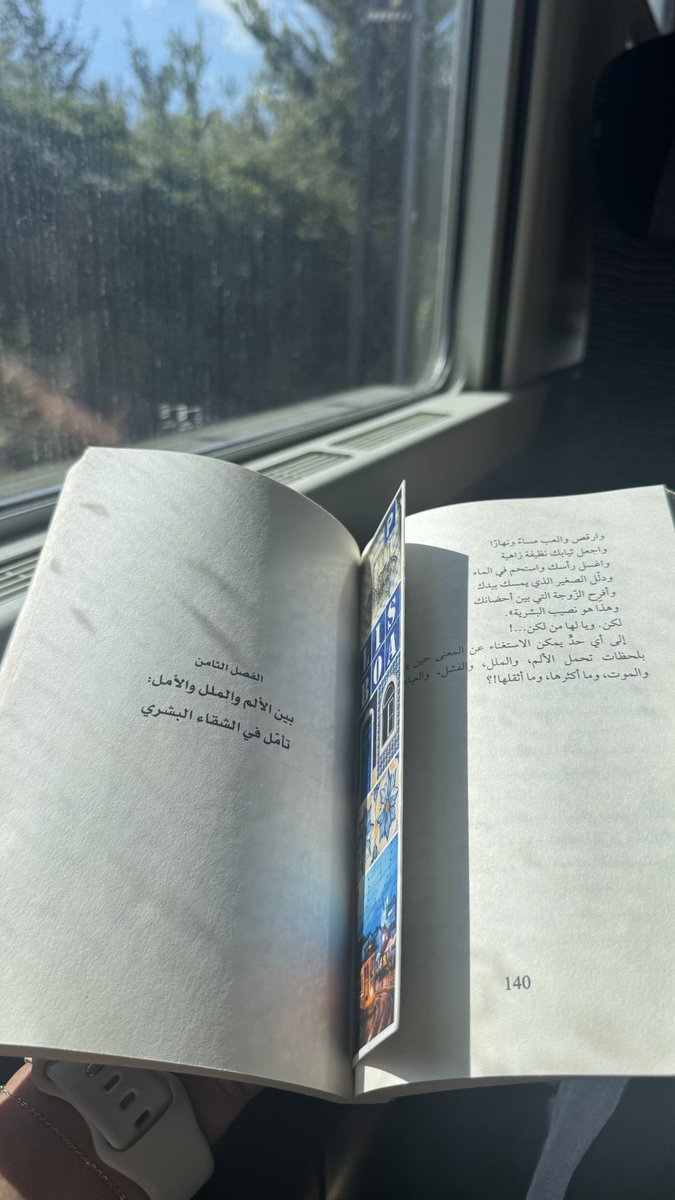 وارقص والعب مساءً ونهارًا
واجعل ثيابك نظيفة زاهية
واغسل رأسك واستحم في الماء
ودلّل الصغير الذي يمسك بيدك
وأفرح الزّوجة التي بين أحضانك
وهذا هو نصيب البشرية».
لكن. ويا لها من لكن...!
إلى أي حدٍّ يمكن الاستغناء عن المعنى حين
بلحظات تحمل الألم، والملل، والفشل،
والموت، وما أكثرها، وما أثقلها!؟
140
الفصل الثامن
بين الألم والملل والأمل:
تأمّل في الشقاء البشري
P
LIS
BOA